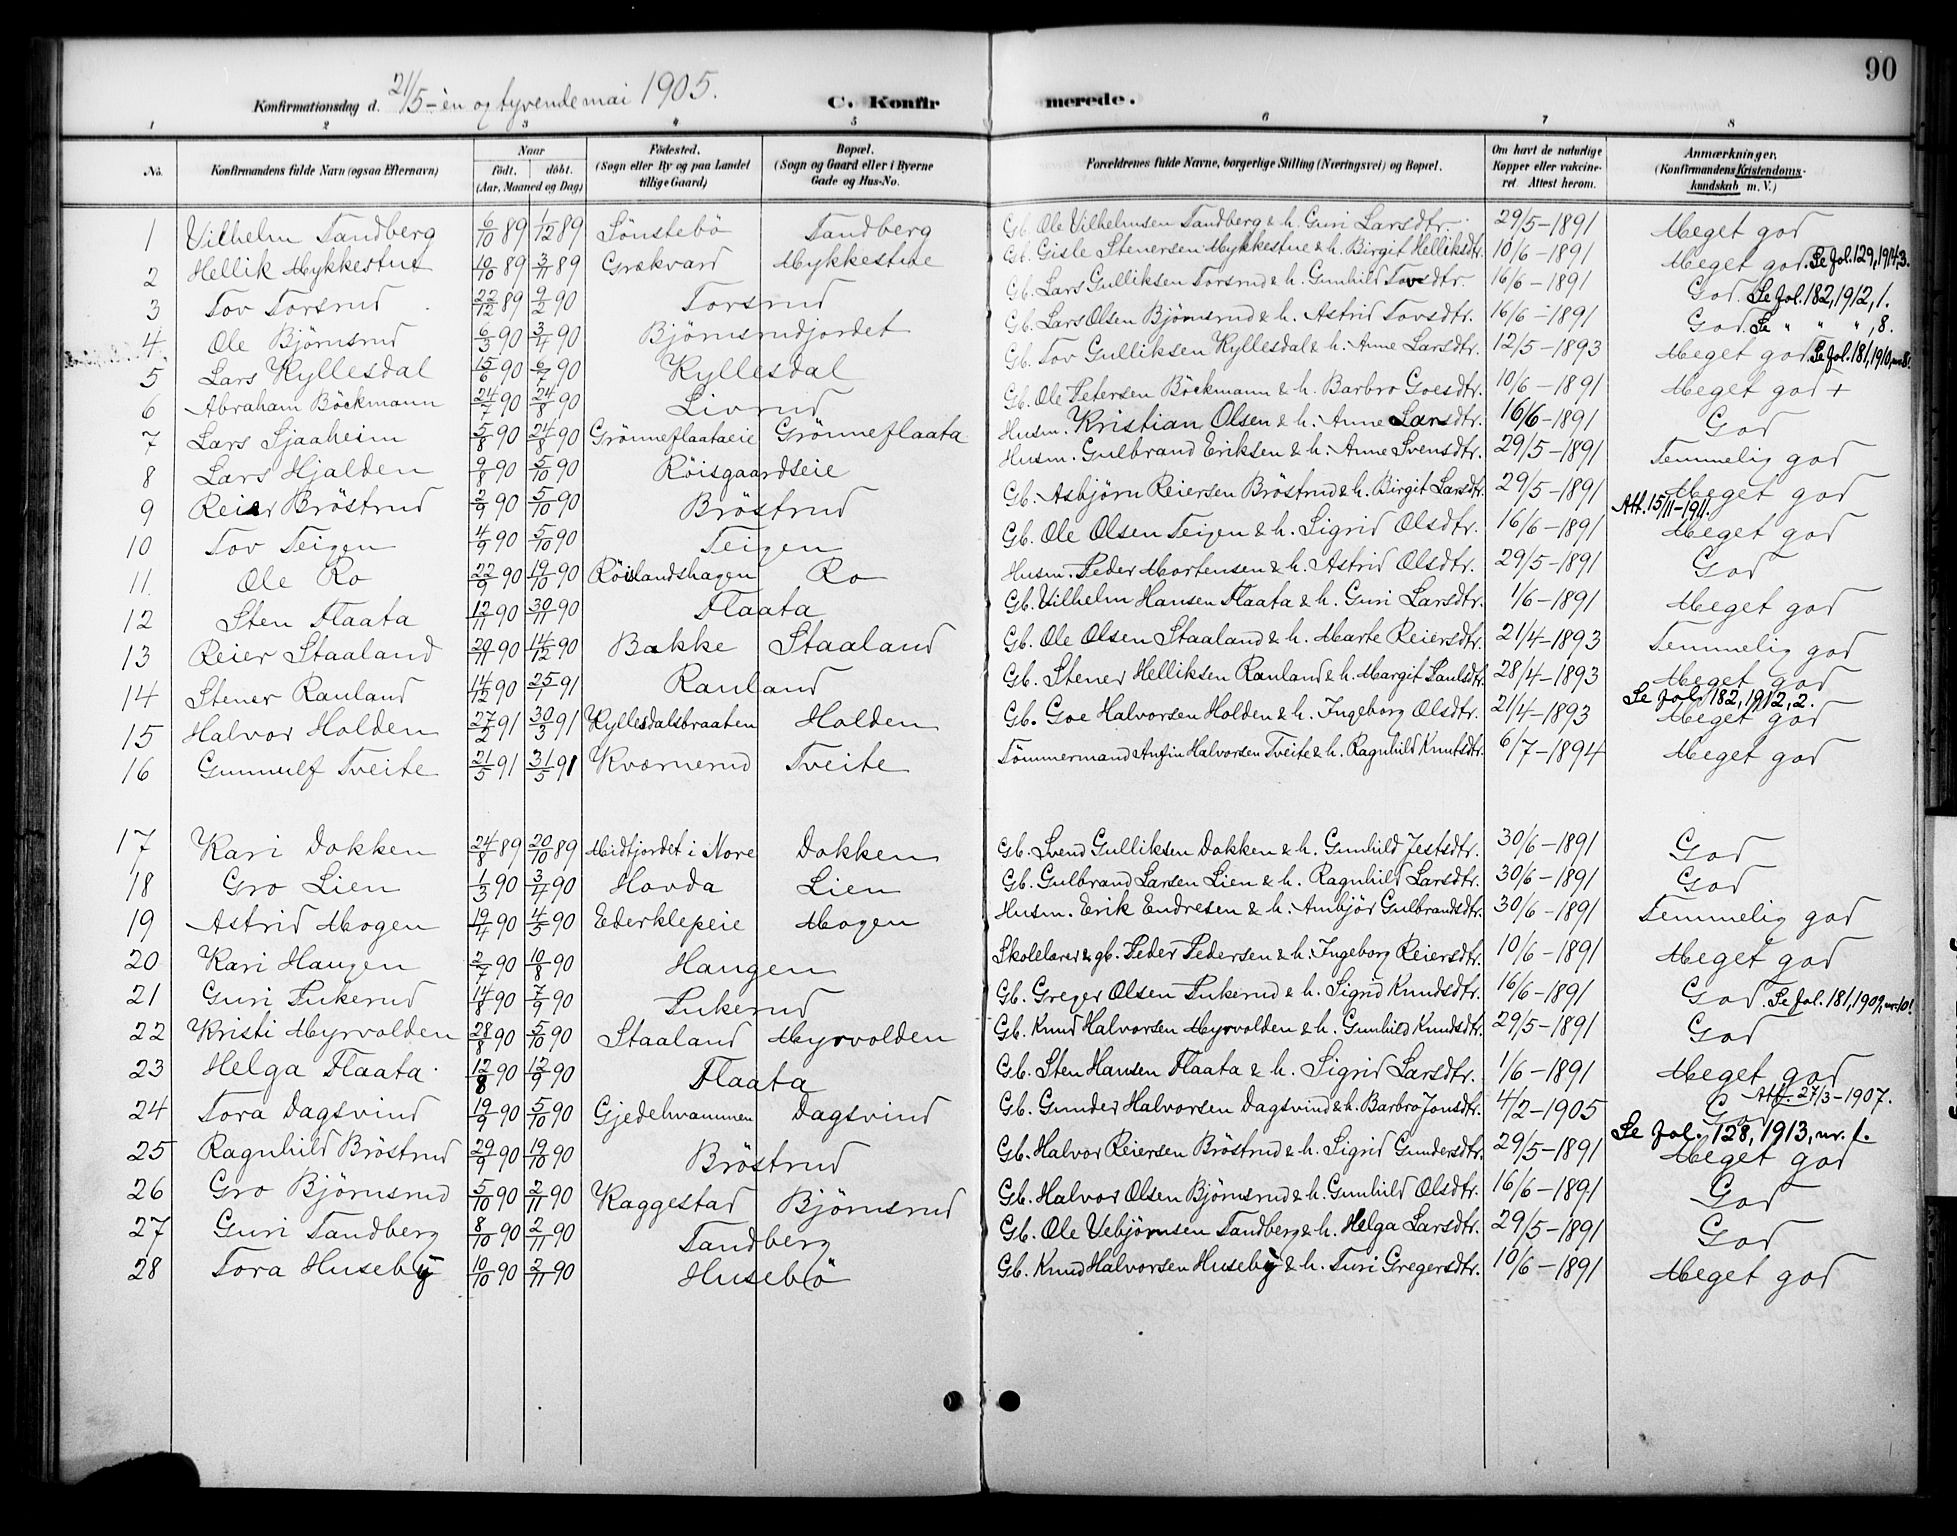 90
Konfirmationsdag d. 21/5 - én og tyvende mai 1905. C. Konfirmerede.
1 2 3 4 5 6 7 8
No. Konfirmandens fulde Navn (ogsaa Efternavn) Naar født. døbt. (Aar, Maaned og Dag) Fødested. (Sogn eller By og paa Landet tillige Gaard) Bopæl. (Sogn og Gaard eller i Byerne Gade og Hus-No. Forældrenes fulde Navne, borgerlige Stilling (Næringsvei) og Bopæl. Om havt de naturlige Kopper eller vakcineret. Attest herom. Anmærkninger. (Konfirmandens Kristendomskundskab m. V.)
1 Vilhelm Tandberg 6/10 89 1/12 89 Sönstebö Tandberg Gb. Ole Vilhelmsen Tandberg & h. Guri Larsdtr. 29/5-1891 Meget god
2 Hellik Mykkestue 10/10 89 3/11 89 Grækvard Mykkestue Gb. Gisle Stenersen Mykkestue & h. Birgit Helliksdtr. 10/6-1891 Meget god. Se Jol. 129, 1914, 3.
3 Tov Torsrud 22/12 89 9/2 90 Torsrud Gb. Lars Gulliksen Torsrud & h. Gunhild Tovsdtr. 16/6-1891 God. Se Jol. 182, 1912, 1.
4 Ole Björnsrud 6/3 90 3/4 90 Björnsrudjordet Gb. Lars Olsen Björnsrud & h. Astrid Tovsdtr. 16/6-1891 God. Se " " ", 8.
5 Lars Kyllesdal 15/6 90 6/7 90 Kyllesdal Gb. Tov Gulliksen Kyllesdal & h. Anne Larsdtr. 12/5-1893 Meget god Se Jol. 181, 1910, nr. 8.
6 Abraham Böckmann 24/7 90 24/8 90 Livrud Gb. Ole Petersen Böckmann & h. Barbro Goesdtr. 10/6-1891 Meget god +
7 Lars Sjaaheim 5/8 90 24/8 90 Grönneflaataeie Grönneflaata Husm. Kristian Olsen & h. Anne Larsdtr. 16/6-1891 God
8 Lars Hjalden 9/8 90 5/10 90 Röisgaardseie Husm. Gulbrand Eriksen & h. Anne Svensdtr. 29/5-1891 Temmelig god
9 Reier Bröstrud 2/9 90 5/10 90 Bröstrud Gb. Asbjörn Reiersen Bröstrud & h. Birgit Larsdtr. 29/5-1891 Meget god
Att. 15/11-1911.
10 Tov Teigen 4/9 90 5/10 90 Teigen Gb. Ole Olsen Teigen & h. Sigrid Olsdtr. 16/6-1891 Meget god
11 Ole Ro 22/9 90 19/10 90 Röislandshagen Ro Husm. Peder Mortensen & h. Astrid Olsdtr. 29/5-1891 God
12 Sten Flaata 12/11 90 30/11 90 Flaata Gb. Vilhelm Hansen Flaata & h. Guri Larsdtr. 1/6-1891 Meget god
13 Reier Staaland 20/11 90 14/12 90 Bakke Staaland Gb. Ole Olsen Staaland & h. Marte Reiersdtr. 21/4-1893 Temmelig god
14 Stener Rauland 14/12 90 25/1 91 Rauland Gb. Stener Helliksen Rauland & h. Margit Paulsdtr. 28/4-1893 Meget god
Se Jol. 182, 1912, 2.
15 Halvor Holden 27/2 91 30/3 91 Kyllesdalsbraaten Holden Gb. Goe Halvorsen Holden & h. Ingeborg Olsdtr. 21/4-1893 Meget god
16 Gunnulf Tveite 21/5 91 31/5 91 Kværnerud Tveite Tömmermand Anfin Halvorsen Tveite & h. Ragnhild Knutsdtr. 6/7-1894 Meget god
17 Kari Dokken 24/8 89 20/10 89 Midtjordet i Nore Dokken Gb. Svend Gulliksen Dokken & h. Gunhild Jestsdtr. 30/6-1891 God
18 Gro Lien 1/3 90 3/4 90 Hovda Lien Gb. Gulbrand Larsen Lien & h. Ragnhild Larsdtr. 30/6-1891 God
19 Astrid Mogen 19/4 90 4/5 90 Ederklepeie Mogen Husm. Erik Endresen & h. Ambjör Gulbrandsdtr. 30/6-1891 Temmelig god
20 Kari Haugen 2/7 90 10/8 90 Haugen Skolelærer & gb. Peder Pedersen & h. Ingeborg Reiersdtr. 10/6-1891 Meget god
21 Guri Pukerud 14/8 90 7/9 90 Pukerud Gb. Greger Olsen Pukerud & h. Sigrid Knudsdtr. 16/6-1891 God Se Jol. 181, 1909, nr. 10!
22 Kristi Myrvolden 28/8 90 5/10 90 Staaland Myrvolden Gb. Knud Halvorsen Myrvolden & h. Gunhild Knudsdtr. 29/5-1891 God
23 Helga Flaata 12/8 90 12/9 90 Flaata Gb. Sten Hansen Flaata & h. Sigrid Larsdtr. 1/6-1891 Meget god
Att. 27/3-1907.
24 Tora Dagsvind 19/9 90 5/10 90 Gjedehvammen Dagsvind Gb. Gunder Halvorsen Dagsvind & h. Barbro Jonsdtr. 4/2-1905 God
Se Jol. 128, 1913, nr. 1.
25 Ragnhild Bröstrud 29/9 90 19/10 90 Bröstrud Gb. Halvor Reiersen Bröstrud & h. Sigrid Gundersdtr. 29/5-1891 Meget god
26 Gro Björnsrud 5/10 90 2/11 90 Kaggestad Björnsrud Gb. Halvor Olsen Björnsrud & h. Gunhild Olsdtr. 16/6-1891 God
27 Guri Tandberg 8/10 90 2/11 90 Tandberg Gb. Ole Vebjörnsen Tandberg & h. Helga Larsdtr. 29/5-1891 God
28 Tora Huseby 10/10 90 2/11 90 Husebö Gb. Knud Halvorsen Huseby & h. Turi Gregersdtr. 10/6-1891 Meget god